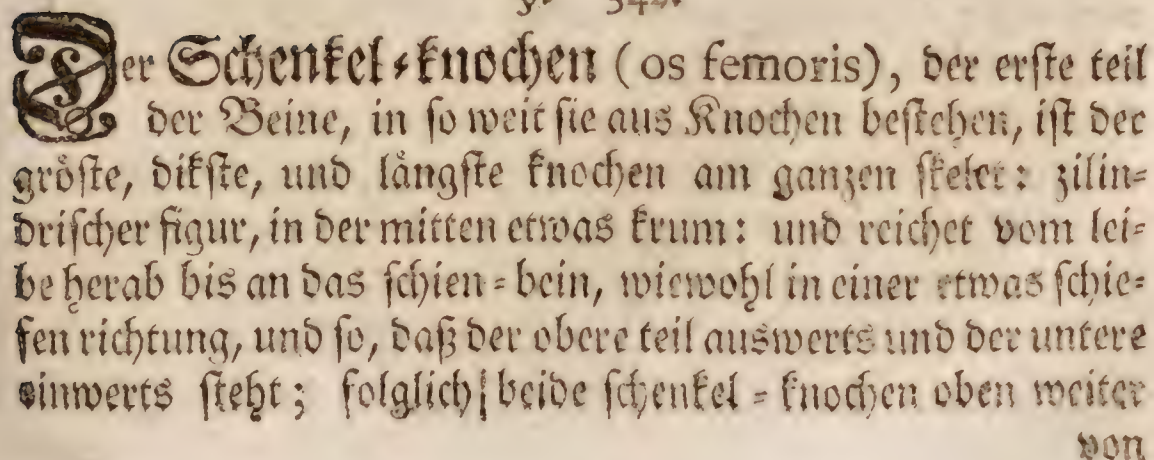 Der Schenkel-knochen (os femoris), der erste teil
der Beine, in so weit sie aus Knochen bestehen, ist der
gröste, dikste, und längste knochen am ganzen skelet: zilin-
drischer figur, in der mitten etwas krum: und reichet vom lei-
be herab bis an das schien-bein, wiewohl in einer etwas schie-
fen richtung, und so, daß der obere teil auswerts und der untere
einwerts steht; folglich beide schenkel-knochen oben weiter
von